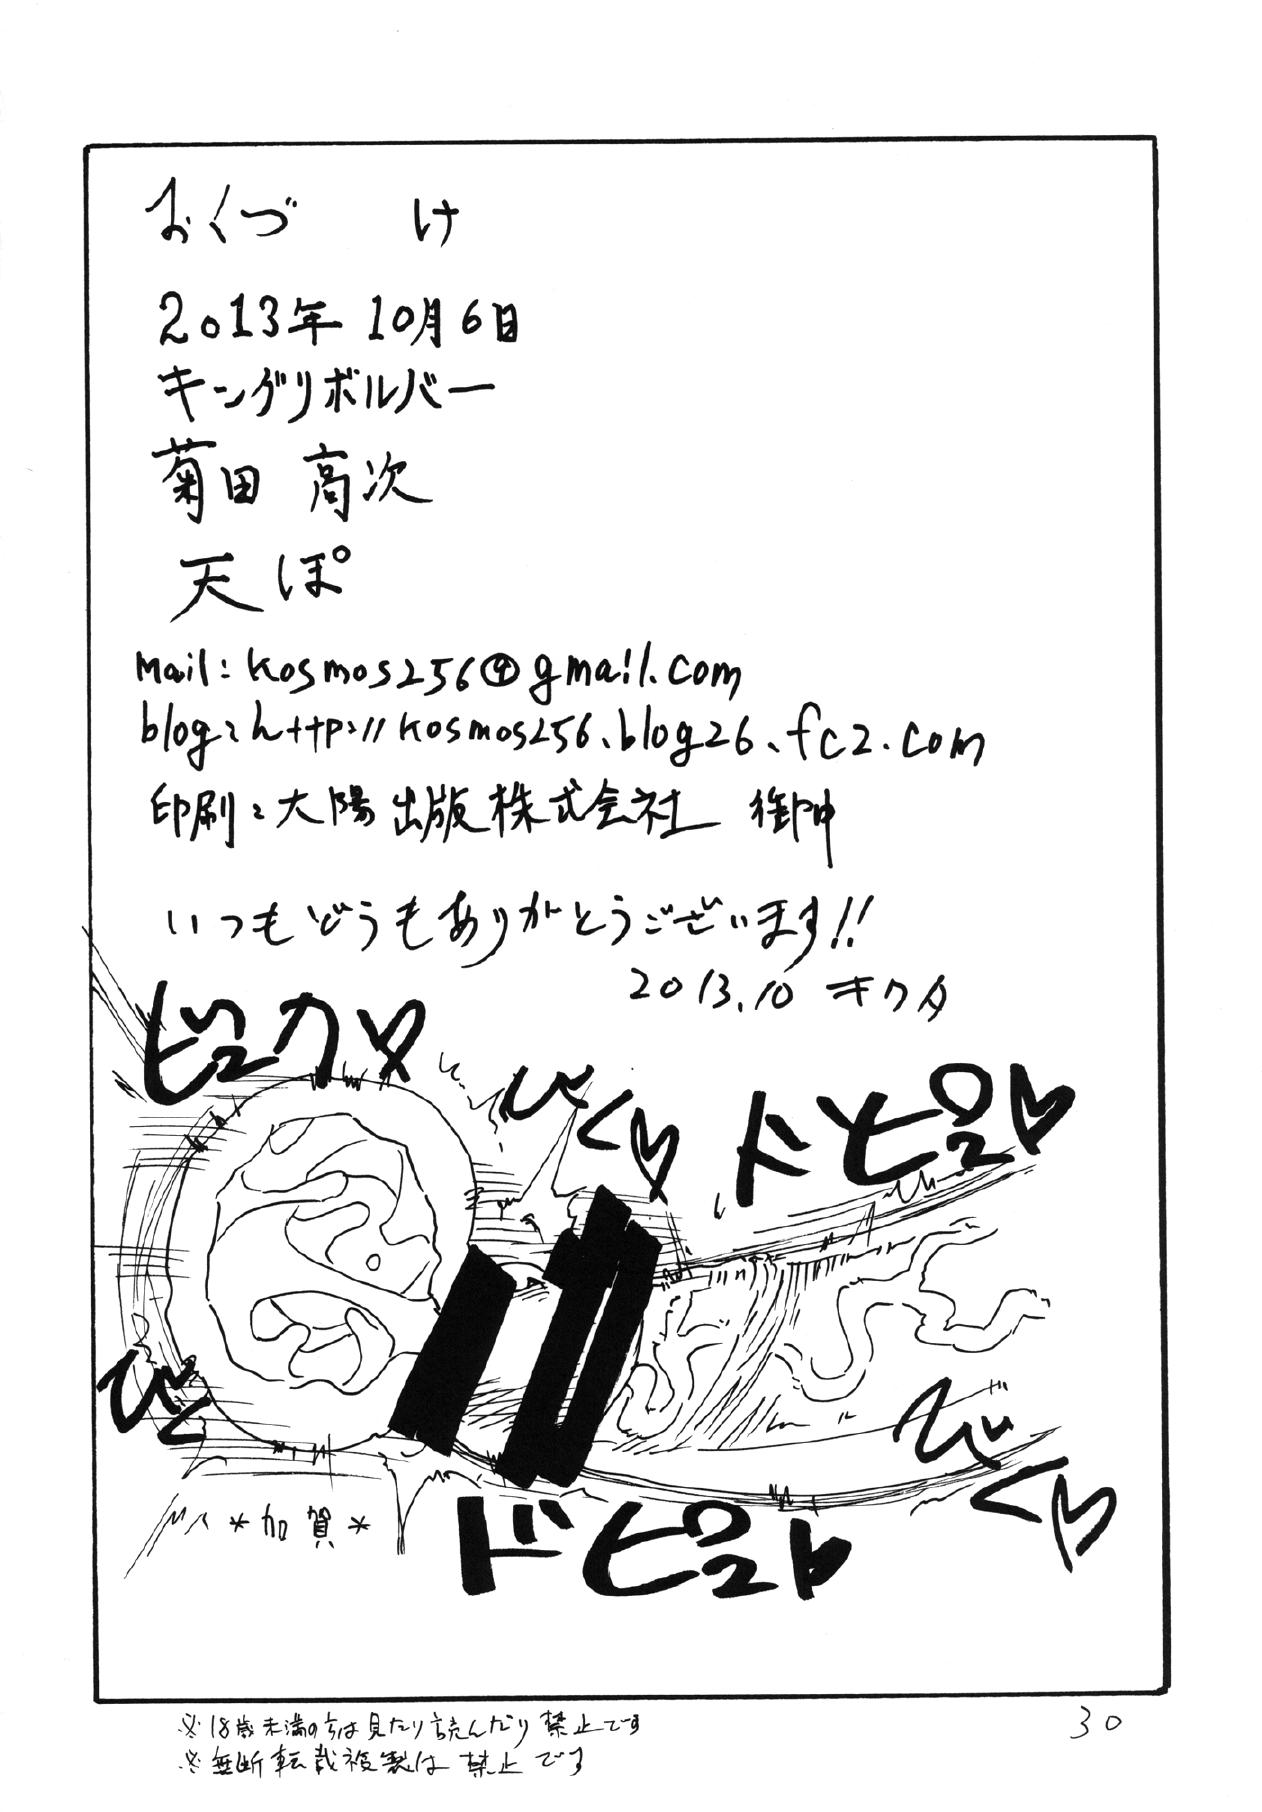 おくづけ
2013年 10月6日
キングリボルバー
菊田 高次
天ぽ
mail:kosmos256@gmail.com
blog:http://kosmos256.blog26.fc2.com
印刷:大陽出版株式会社 御中
いつもどうもありがとうございます!!
2013.10 キクタ
ビュクッ♥
びく♥
ドピュ♥
びく
びく♥
*加賀*
ドピュ
※18歳未満の方は見たり読んだり禁止です
※無断転載複製は禁止です
30